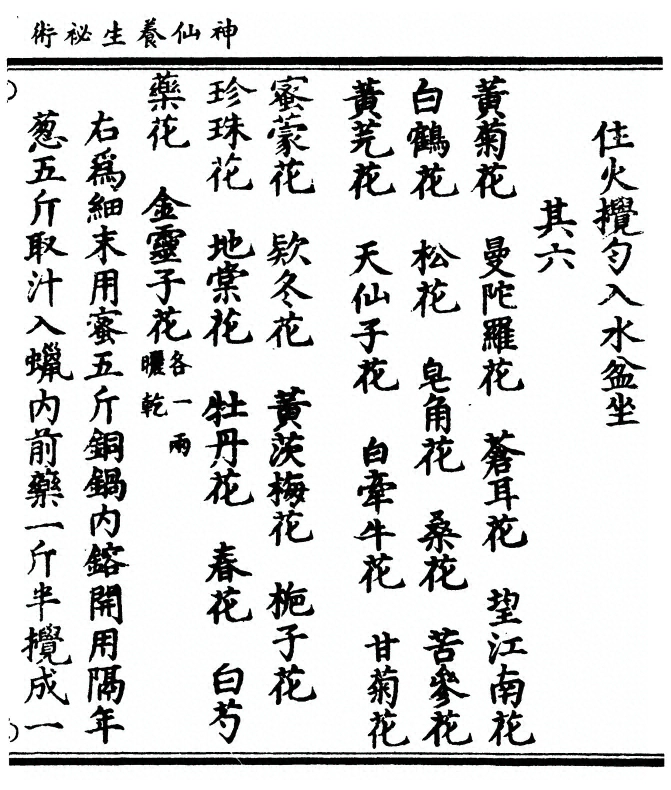 神仙養生祕術
住火攪勻入水盆坐
其六
黃菊花 曼陀羅花 蒼耳花 望江南花
白鶴花 松花 皂角花 桑花 苦參花
黃芫花 天仙子花 白牽牛花 甘菊花
蜜蒙花 欵冬花 黃茨梅花 梔子花
珍珠花 地棠花 牡丹花 春花 白芍
藥花 金靈子花 各一兩 曬乾
右爲細末用蜜五斤銅鍋內鎔開用隔年
葱五斤取汁入蠟內前藥一斤半攪成一